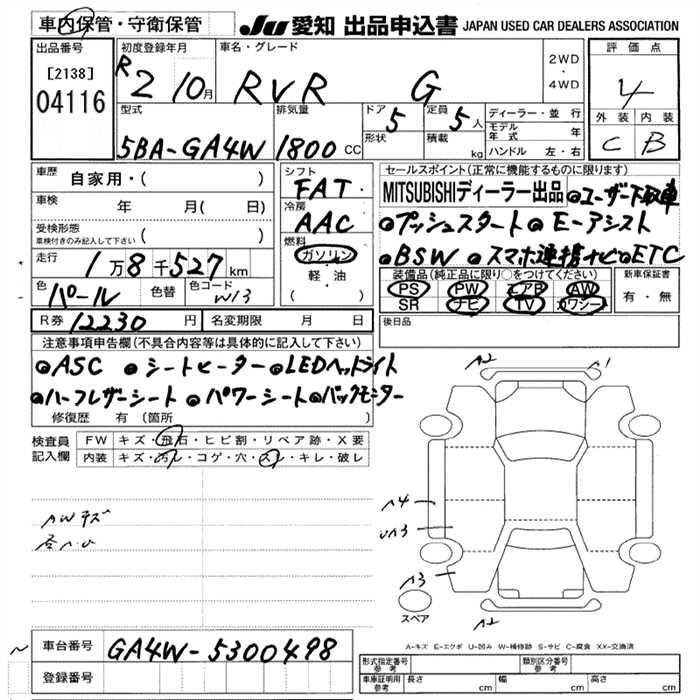 車内保管・守衛保管 JU 愛知 出品申込書 JAPAN USED CAR DEALERS ASSOCIATION
出品番号 [2138] 04116
初度登録年月 R2 10月
車名・グレード RVR G
2WD・4WD
評価点 4
外装 C 内装 B
型式 5BA-GA4W
排気量 1800cc
ドア 5 形状
定員 5人 積載 kg
ディーラー・並行
モデル年式 年
ハンドル 左・右
車歴 自家用・( )
車検 年 月( 日)
受検形態 車検付きのみ記入して下さい ( )
走行 1万8千527km
色 パール 色替 色コード W13
R券 12230円 名変期限 月 日
シフト FAT
冷房 AAC
燃料 ガソリン・軽・油 ( )
セールスポイント(正常に機能するものに限ります)
MITSUBISHIディーラー出品 ◎ユーザー下取車
◎プッシュスタート ◎E-アシスト
◎BSW ◎スマホ連携ナビ ◎ETC
装備品(純正品に限り○をつけてください)
PS PW エアB AW
SR ナビ TV カワシート
新車保証書 有・無
後日品
注意事項申告欄(不具合内容等は具体的に記入して下さい)
◎ASC ◎シートヒーター ◎LEDヘッドライト
◎ハーフレザーシート ◎パワーシート ◎バックモニター
修復歴 有 (箇所 )
検査員記入欄
FW キズ・飛石・ヒビ割・リペア跡・X要
内装 キズ・汚レ・コゲ・穴・スレ・キレ・破レ
AWキズ
A2 A1
A4
UA3
A3
A2
スペア
A-キズ E-エクボ U-凹み W-補修跡 S-サビ C-腐食 XX-交換済
車台番号 GA4W-5300498
登録番号
形式指定番号 参考 類別区分番号 参考
車庫証明用 参考 長さ cm 幅 cm 高さ cm